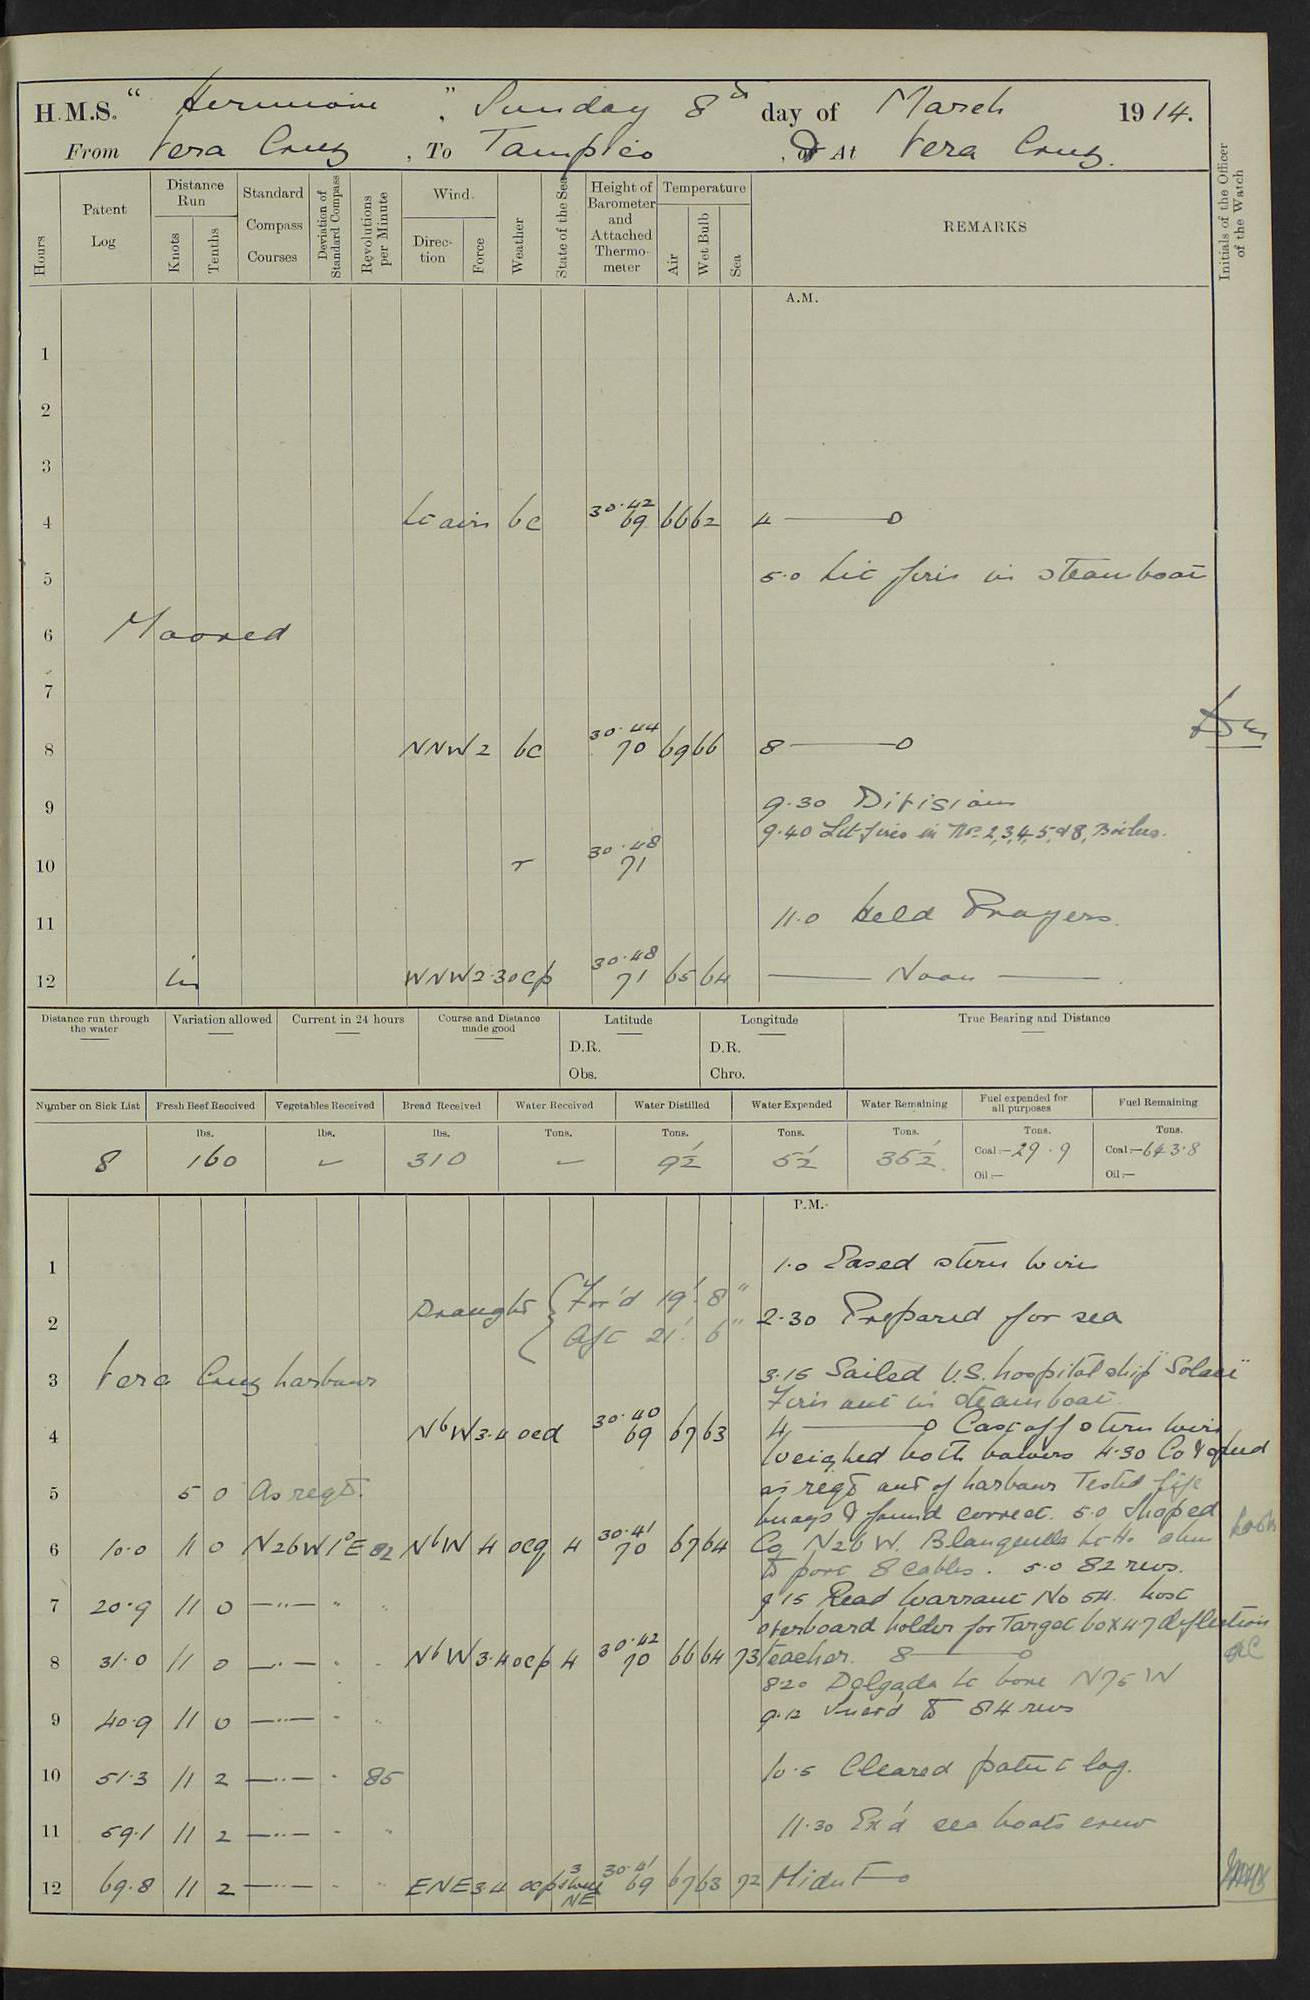 H.M.S. "Hermione", Sunday 8th day of March 1914.
From Vera Cruz, To Tampico, or At Vera Cruz.
Hours
Patent Log
Distance Run
Knots
Tenths
Standard Compass Courses
Deviation of Standard Compass
Revolutions per Minute
Wind.
Direction
Force
Weather
State of the Sea
Height of Barometer and Attached Thermometer
Temperature
Air
Wet Bulb
Sea
REMARKS
Initials of the Officer of the Watch
A.M.
1
2
3
4 Lt airs bc 30.42 69 66 62 4
5 5.0 Lit fires in steamboat
6 Moored
7
8 NNW 2 bc 30.44 70 69 66 8
9 9.30 Divisions
9.40 Lit fires in Nos 2,3,4,5,&8, Boilers.
10 r 30.48 71
11 11.0 Held Prayers.
12 in WNW 2.3 ocp 30.48 71 65 64 Noon
Distance run through the water
Variation allowed
Current in 24 hours
Course and Distance made good
Latitude
D.R.
Obs.
Longitude
D.R.
Chro.
True Bearing and Distance
Number on Sick List
Fresh Beef Received
Vegetables Received
Bread Received
Water Received
Water Distilled
Water Expended
Water Remaining
Fuel expended for all purposes
Fuel Remaining
lbs. lbs. lbs. Tons. Tons. Tons. Tons. Tons. Tons.
8 160 - 310 - 9½ 5½ 35½ Coal:-29.9 Coal:-643.8
Oil:- Oil:-
P.M.
1 1.0 Eased stern wire
Draught { For'd 19' 8"
2 2.30 Prepared for sea
Aft 21' 6"
3 Vera Cruz harbour 3.15 Sailed U.S. hospital ship "Solace"
Fires out in steamboat
4 NbW 3.4 ocd 30.40 69 67 63 4 Cast off stern wire
Weighed both bowers 4.30 Co & speed
5 5 0 As reqd. as reqd out of harbour Tested life
buoys & found correct. 5.0 Shaped
6 10.0 11 0 N26W 1°E 82 NbW 4 ocq 4 30.41 70 67 64 Co N26W. Blanquilla Lt Ho abm
to port 8 cables. 5.0 82 revs.
7 20.9 11 0 —"— " " 7.15 Read Warrant No 54. Lost
overboard holder for Target box 4.7 deflection
8 31.0 11 0 —"— " " NbW 3.4 ocp 4 30.42 70 66 64 73 teacher. 8
8.20 Delgada Lt bore N75W
9 40.9 11 0 —"— " " 9.12 Incrd to 84 revs
10 51.3 11 2 —"— " 85 10.5 Cleared patent log.
11 59.1 11 2 —"— " " 11.30 Ex'd sea boats crew
12 69.8 11 2 —"— " " ENE 3.4 ocp 3 swell NE 30.41 69 67 63 72 Midnt